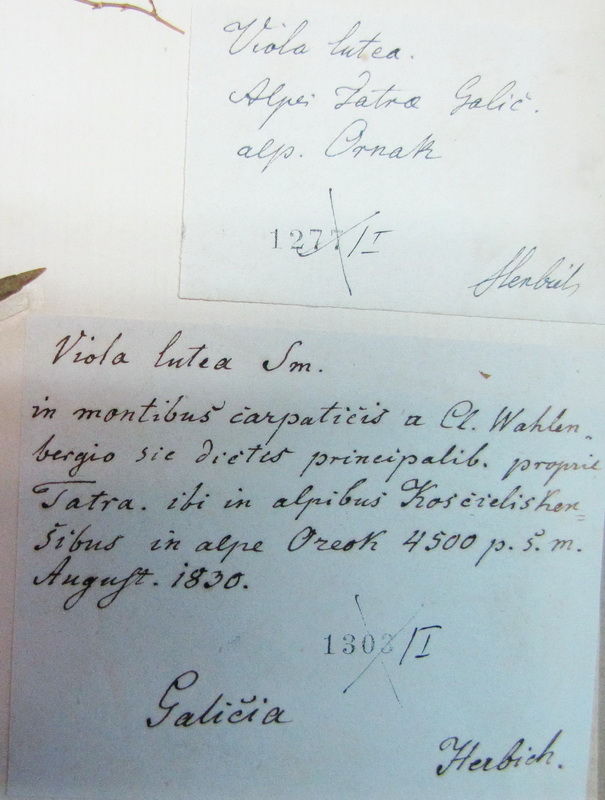 Viola lutea.
Alpes Tatræ Galič.
alp. Ornak
1277/I
Herbich
Viola lutea Sm.
in montibus čarpatičis a Cl. Wahlen=
bergio sic dictis principalib. proprie
Tatra. ibi in alpibus Kosčielisken=
šibus in alpe Oreok 4500 p. š. m.
August. 1830.
1303/I
Galičia
Herbich.